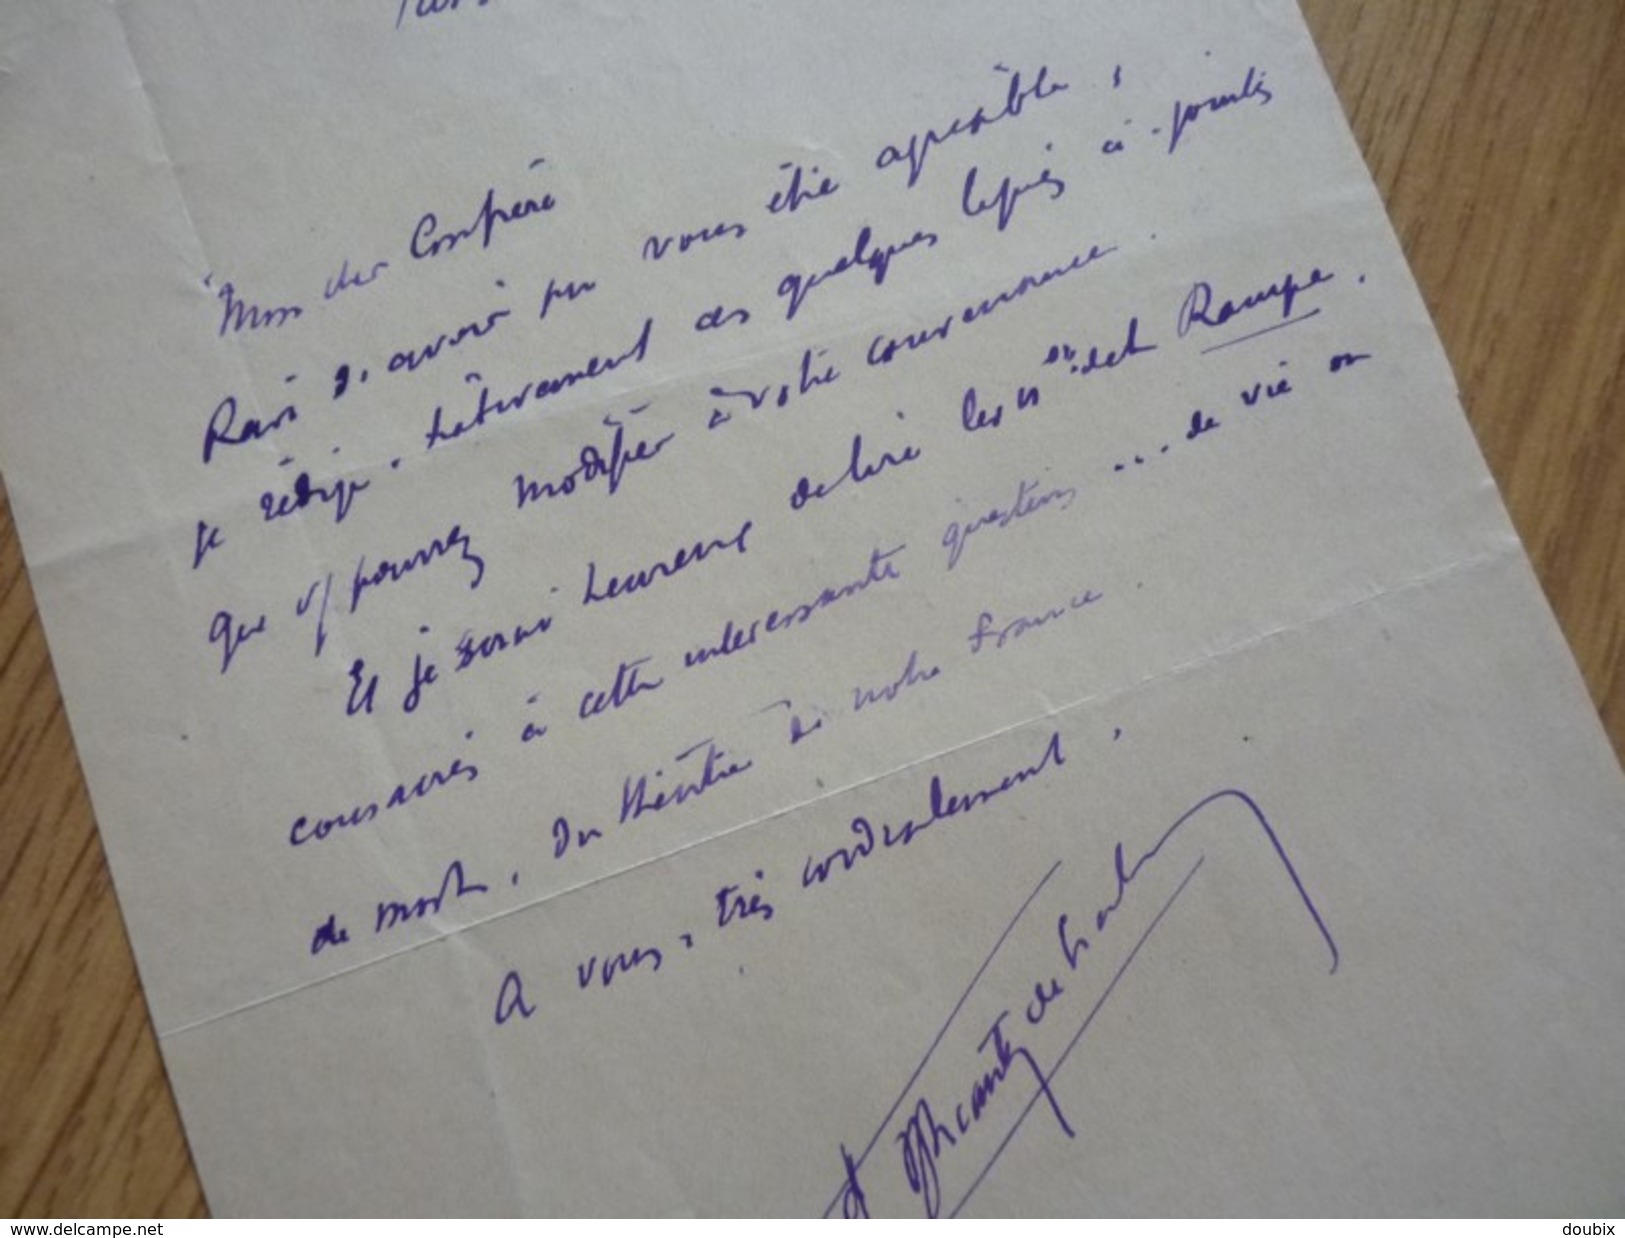 Mon cher Confrère
Ravi d'avoir pu vous être agréable,
je rédige, hâtivement ces quelques lignes ci-jointes
que v/ pourrez modifier à votre convenance.
Et je serai heureux de lire les nos de la Rampe.
consacrés à cette intéressante question ... de vie ou
de mort, du théâtre de notre France.
A vous, très cordialement,
de
www.delcampe.net
doubix